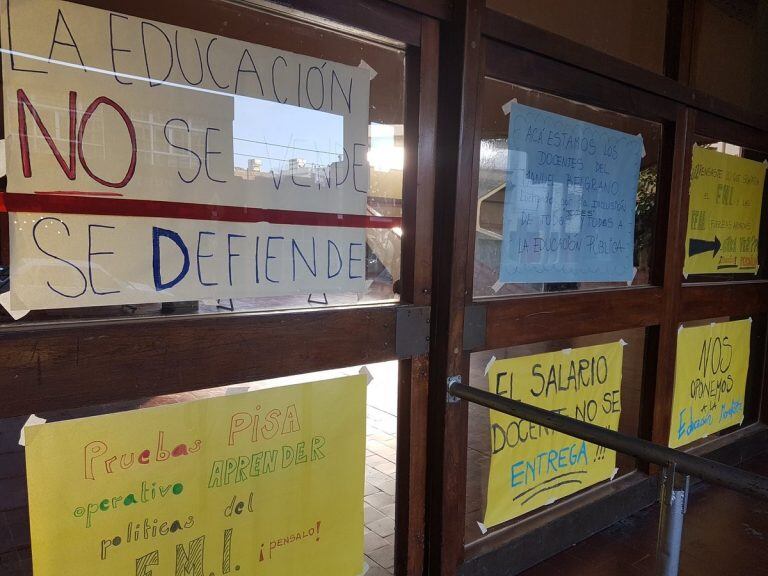 LA EDUCACIÓN
NO SE VENDE
SE DEFIENDE
ACÁ ESTAMOS LOS
DOCENTES DEL
MANUEL BELGRANO
SIEMPRE POR LA INCLUSIÓN
DE TODOS Y TODAS A
LA EDUCACIÓN PÚBLICA
EL
F.M.I.
FUERZAS ARMADAS
Pruebas PISA
operativo APRENDER
políticas del
F.M.I. ¡PENSALO!
EL SALARIO
DOCENTE NO SE
ENTREGA!!!
NOS
OPONEMOS
A LA
Educación